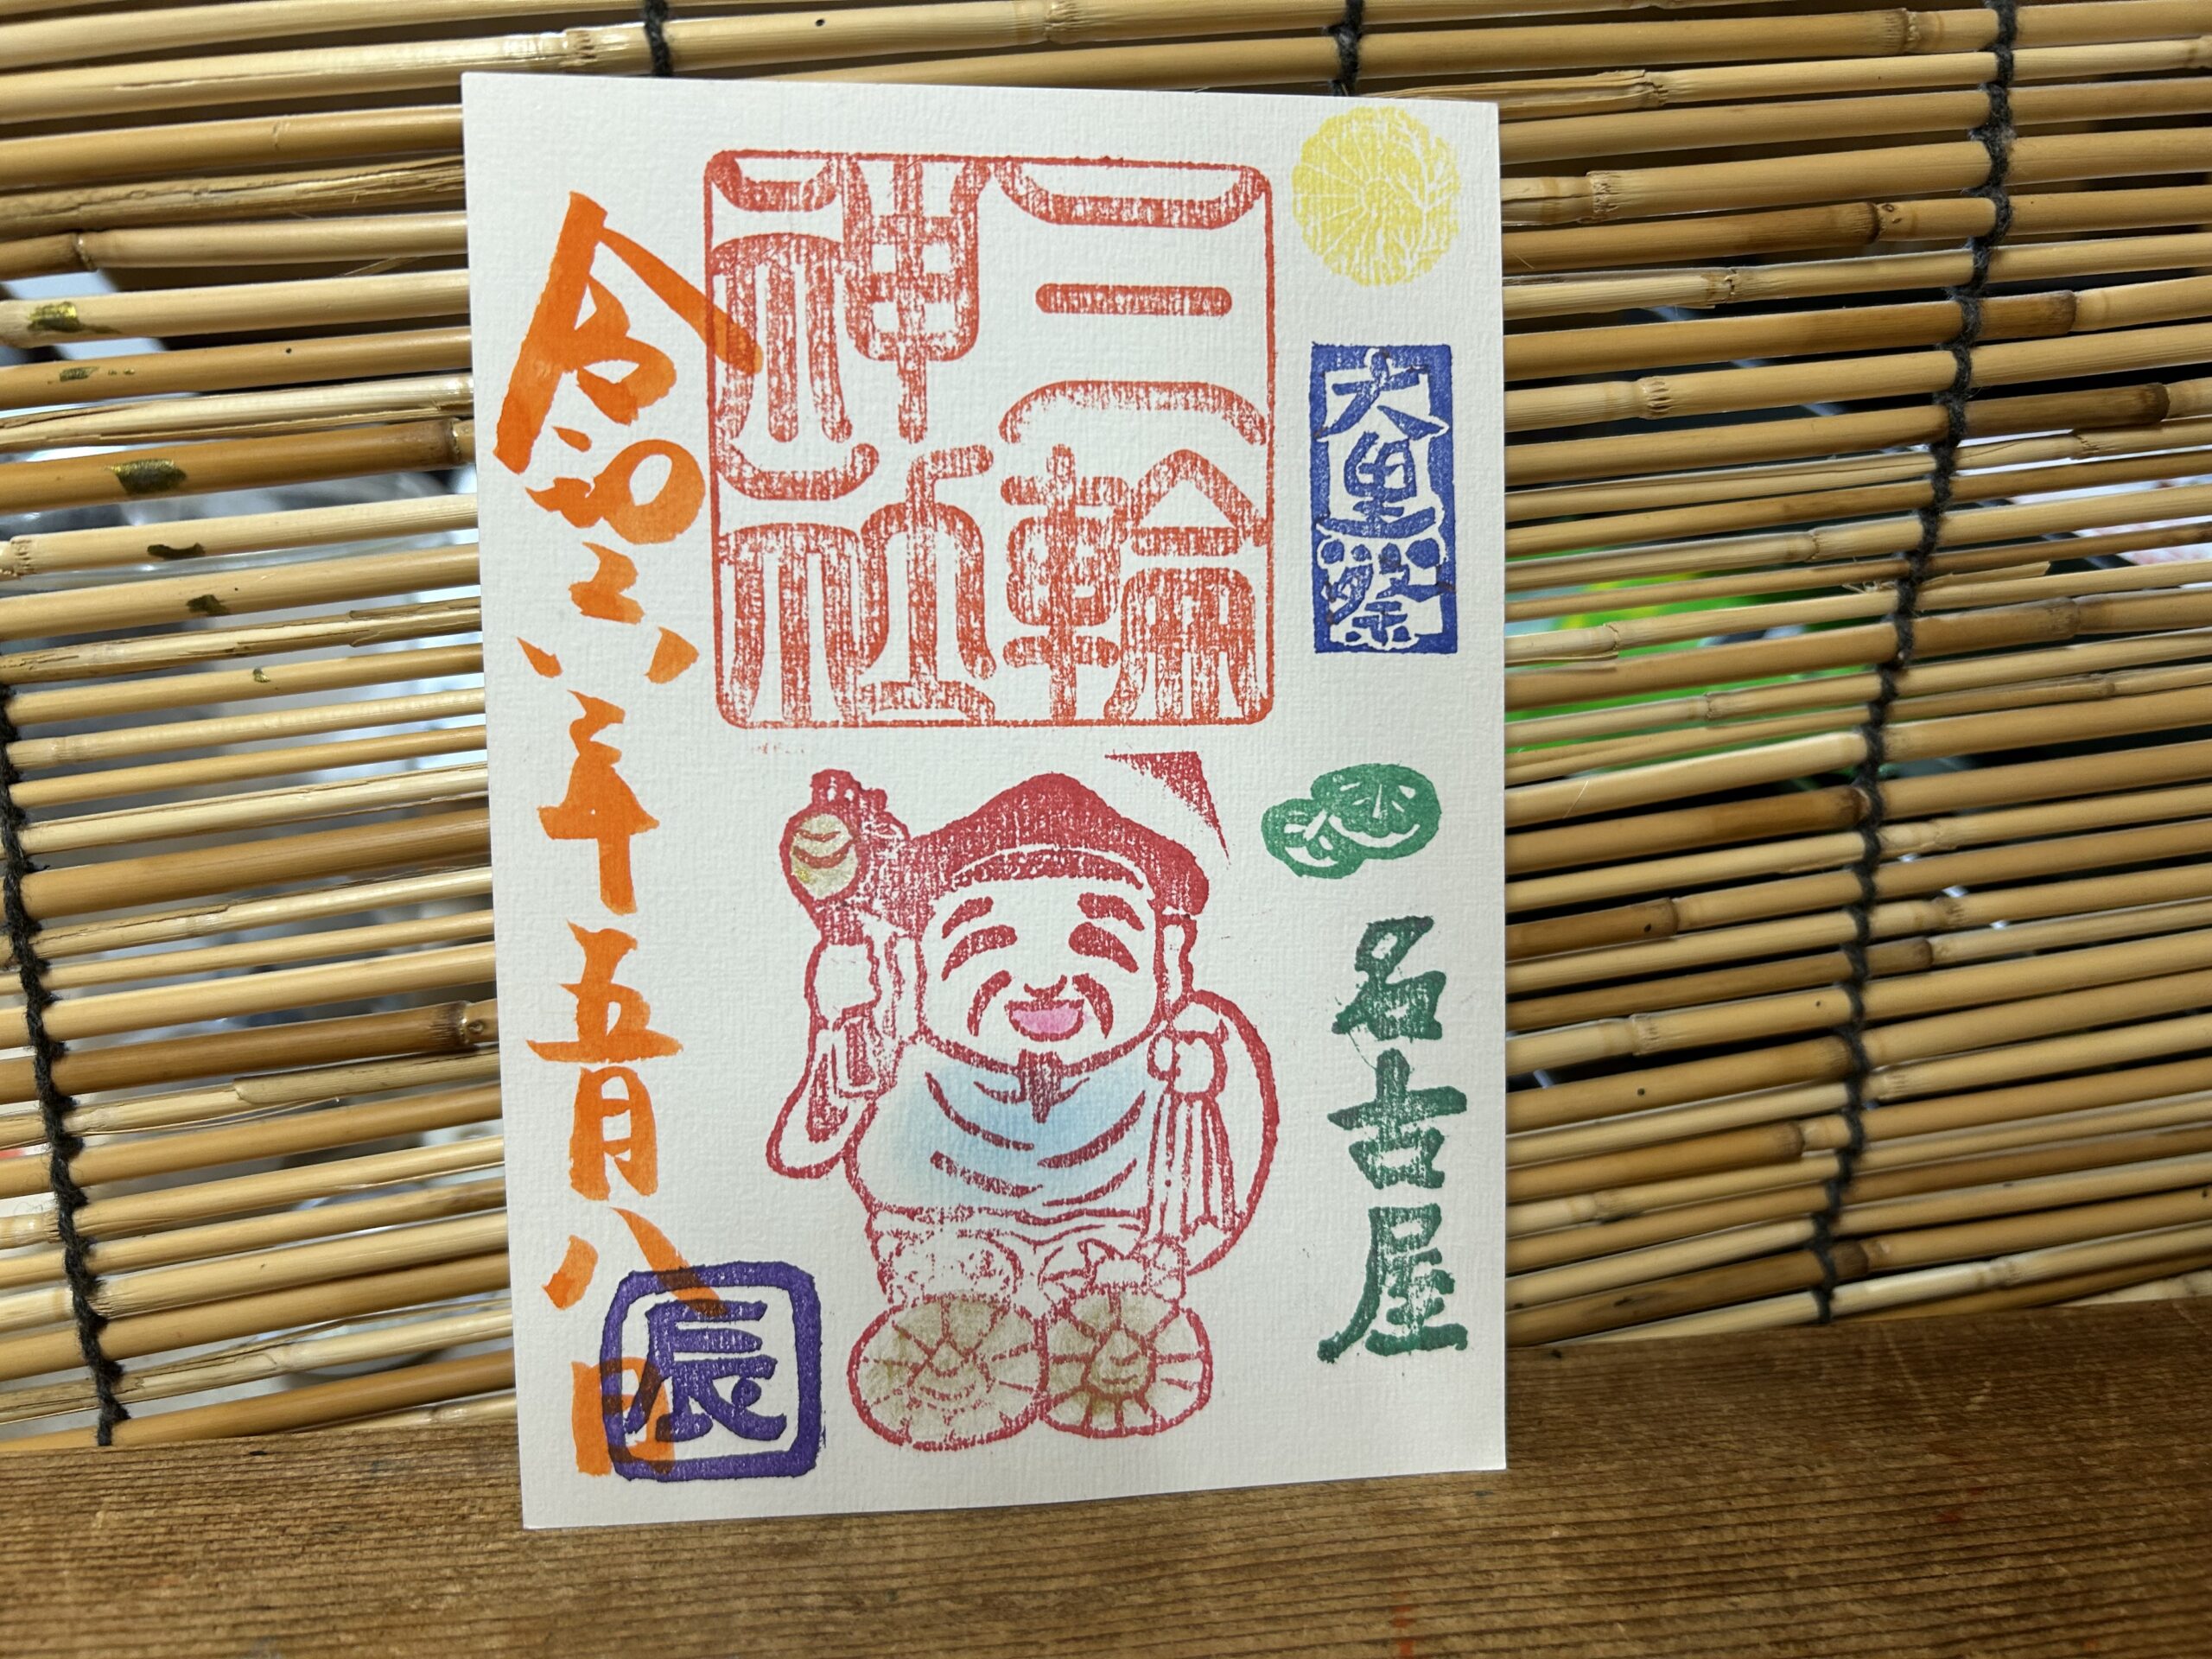 大黒祭
名古屋
三輪
神社
令和六年五月八日
辰